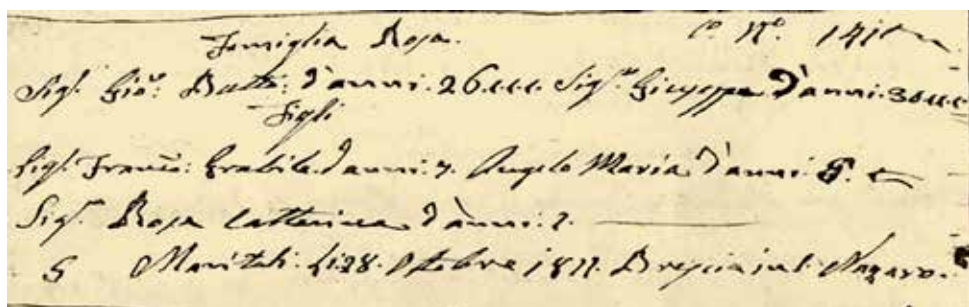 Famiglia Rosa. C.º Nº.
Sigʳ. Gioˢ: Batta: d'anni. 26. c.c.c. Sigʳᵃ. Giuseppa d'anni. 30 c.c.c.
Figli
Sigʳ. Franco: d'anni. 7. Angelo Maria d'anni.
Sigʳᵃ. Rosa Catterina d'anni. 2.
5 Maritati. li. 28. Ottobre Brescia